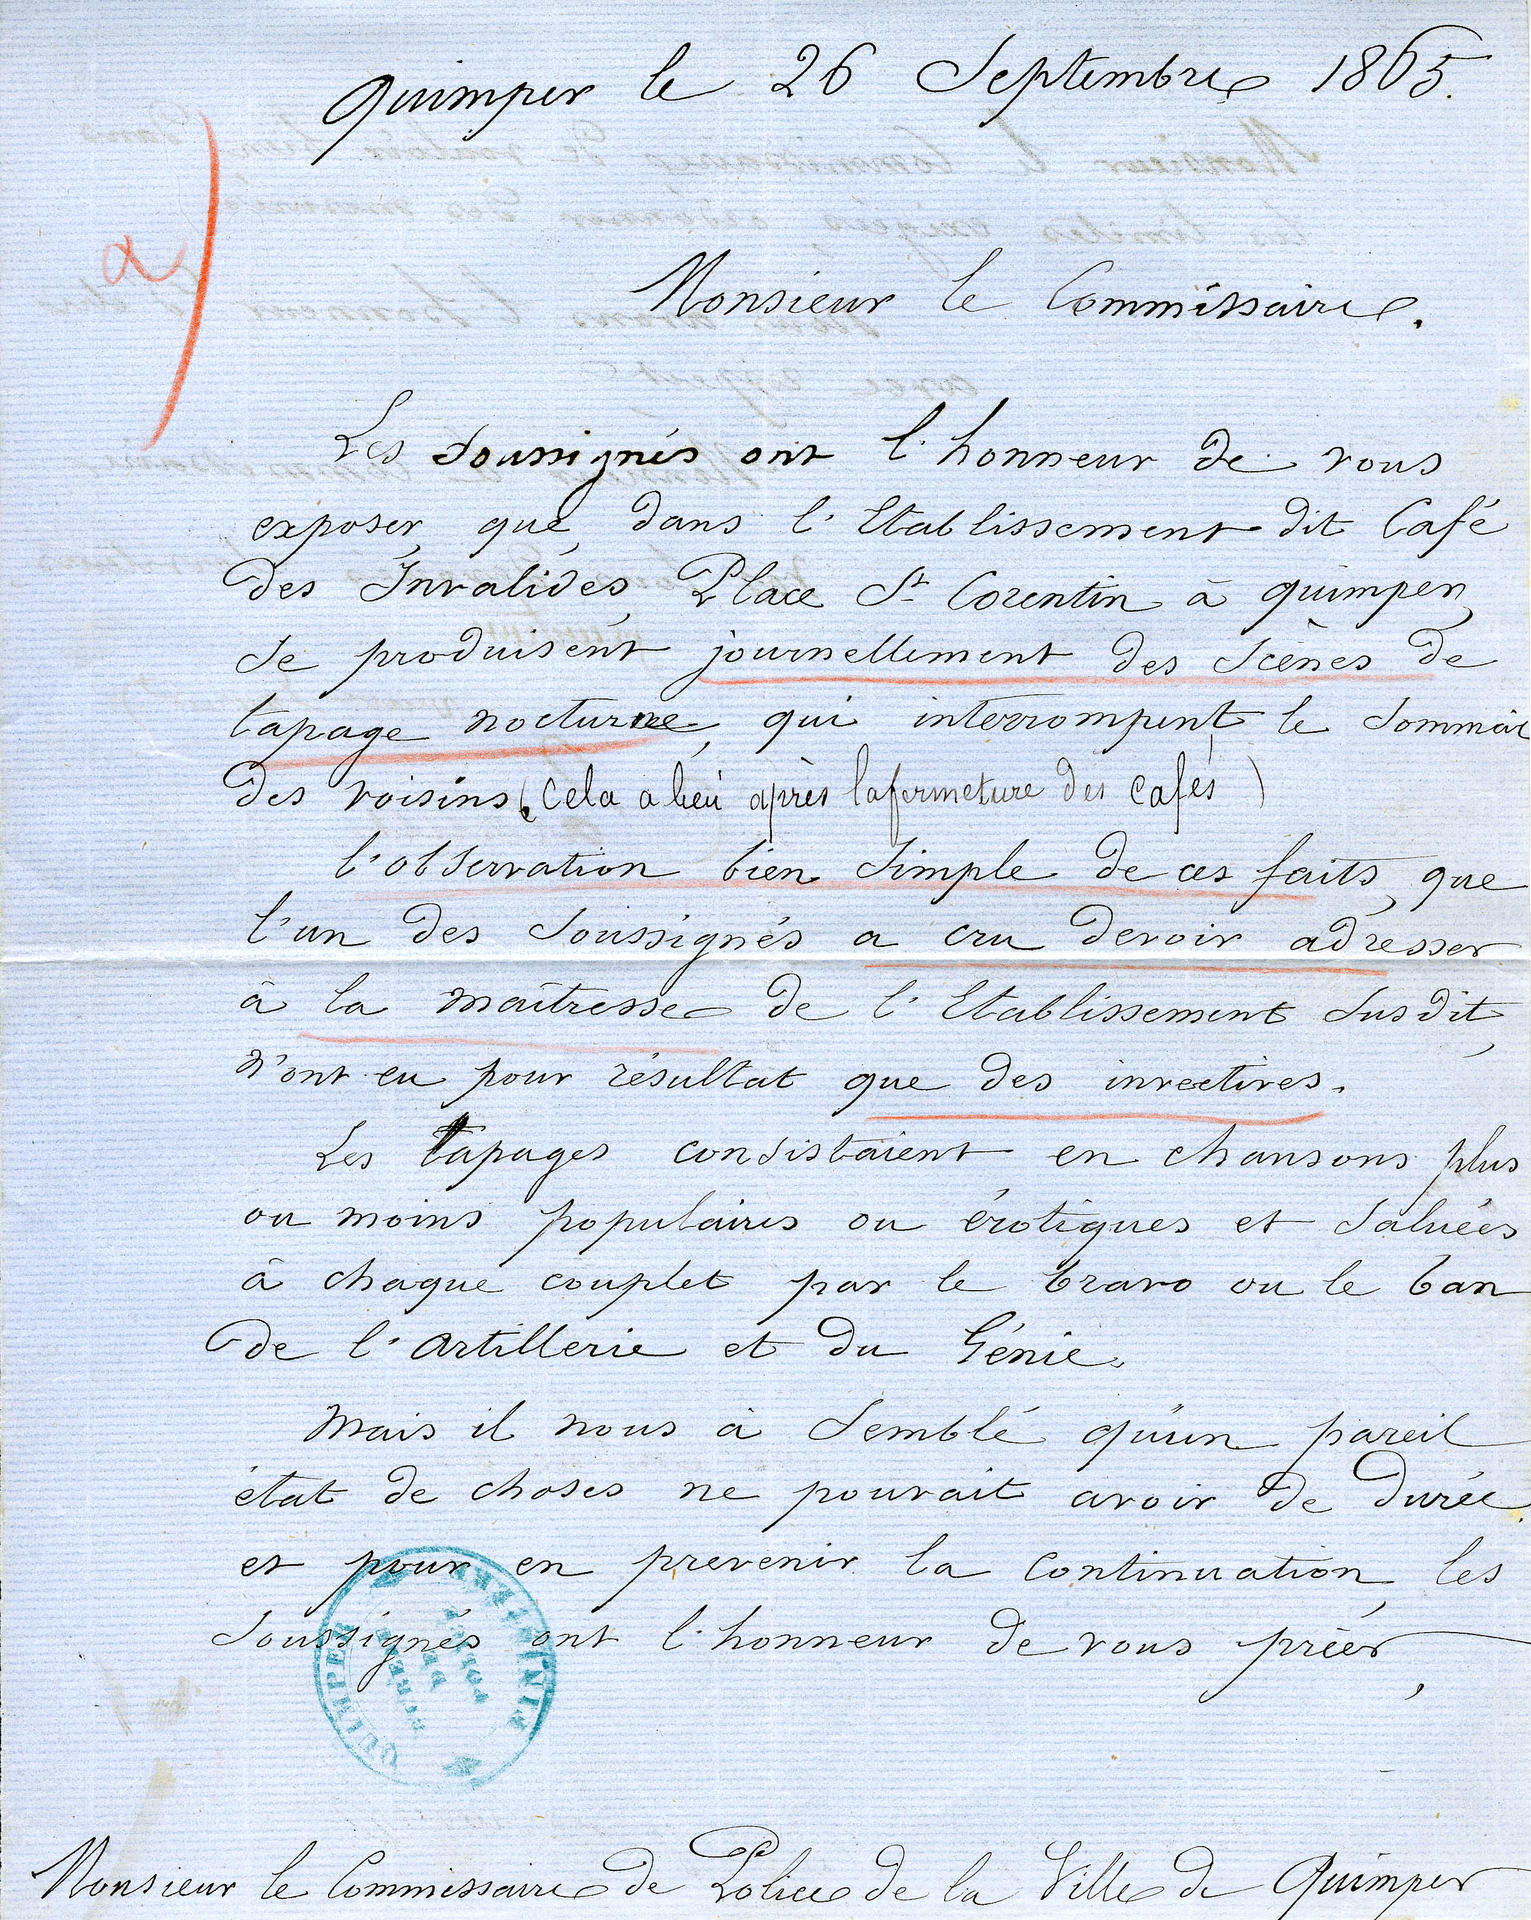 Quimper le 26 Septembre 1865.
a)
Monsieur le Commissaire.
Les soussignés ont l'honneur de vous
exposer que dans l'Etablissement dit Café
des Invalides, Place St Corentin à Quimper,
se produisent journellement des scènes de
tapage nocturne, qui interrompent le sommeil
des voisins (Cela a lieu après la fermeture des cafés)
l'observation bien simple de ces faits, que
l'un des soussignés a cru devoir adresser
à la maîtresse de l'Etablissement susdit,
n'ont eu pour résultat que des invectives.
Les Tapages consistaient en chansons plus
ou moins populaires ou érotiques et saluées
à chaque couplet par le bravo ou le ban
de l'artillerie et du Génie.
Mais il nous à semblé qu'un pareil
état de choses ne pouvait avoir de durée,
et pour en prevenir la continuation, les
soussignés ont l'honneur de vous prier,
QUIMPER FINISTÈRE
POLICE
Monsieur le Commissaire de Police de la Ville de Quimper